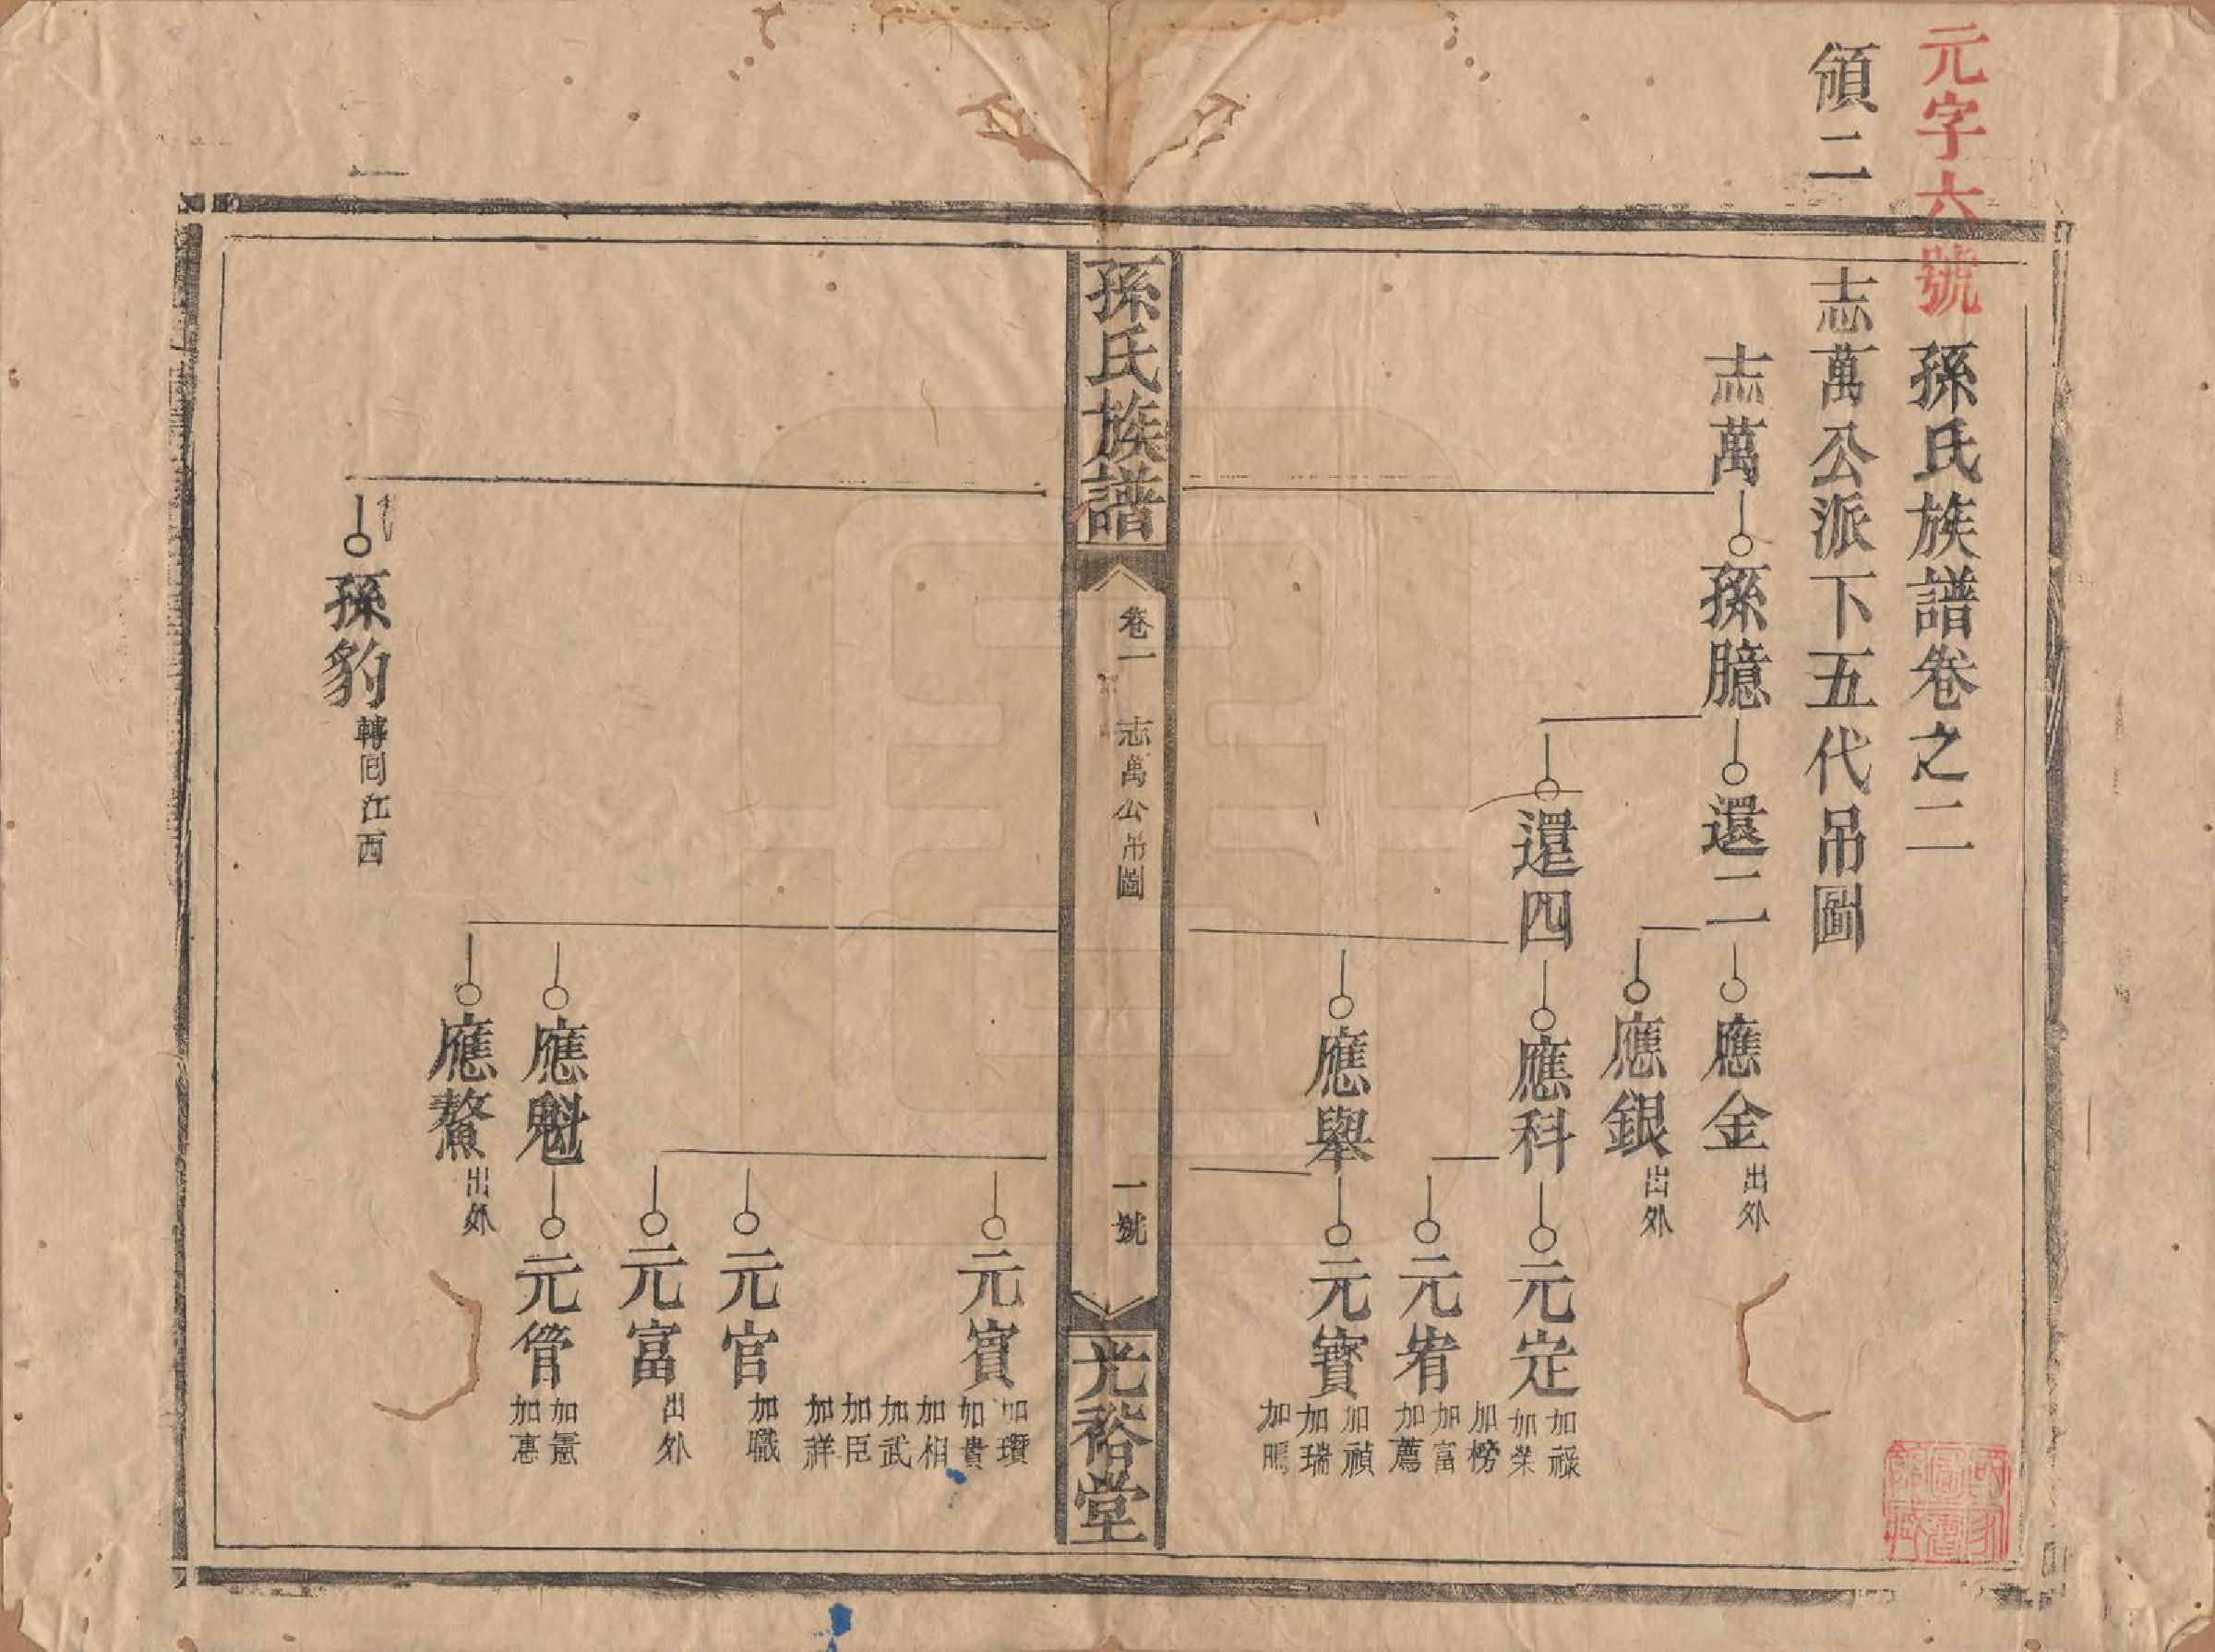 元字六號
孫氏族譜卷之二
頒二
志萬公派下五代吊圖
志萬
孫臆
還二
應金
出外
應銀
出外
還四
應科
元定
加祿
加榮
加榜
元宥
加富
加薦
應舉
元寶
加禎
加瑞
加
孫氏族譜
卷一
志萬公吊圖
一號
光裕堂
元賓
加瓚
加貴
加相
加武
加臣
加祥
元官
加職
元富
出外
應魁
元管
加憲
加惠
應鰲
出外
孫豹
轉回江西
國家圖書館藏